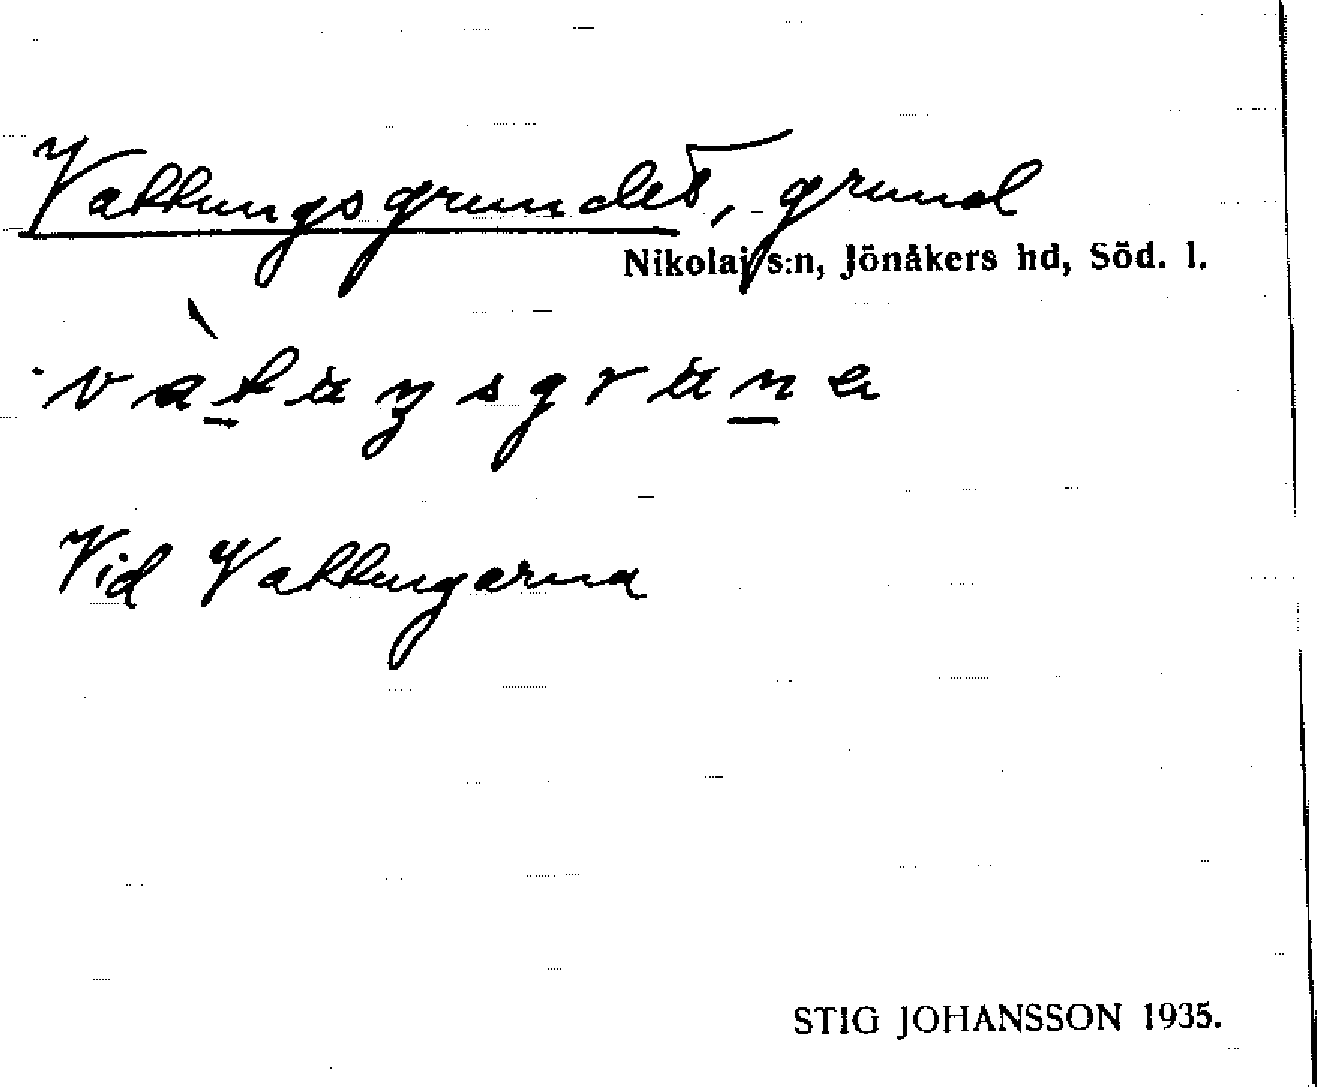 Vakkungsgrundet, grund
Nikolaj s:n, Jönåkers hd, Söd. l.
Vid Vakkungarna
STIG JOHANSSON 1935.